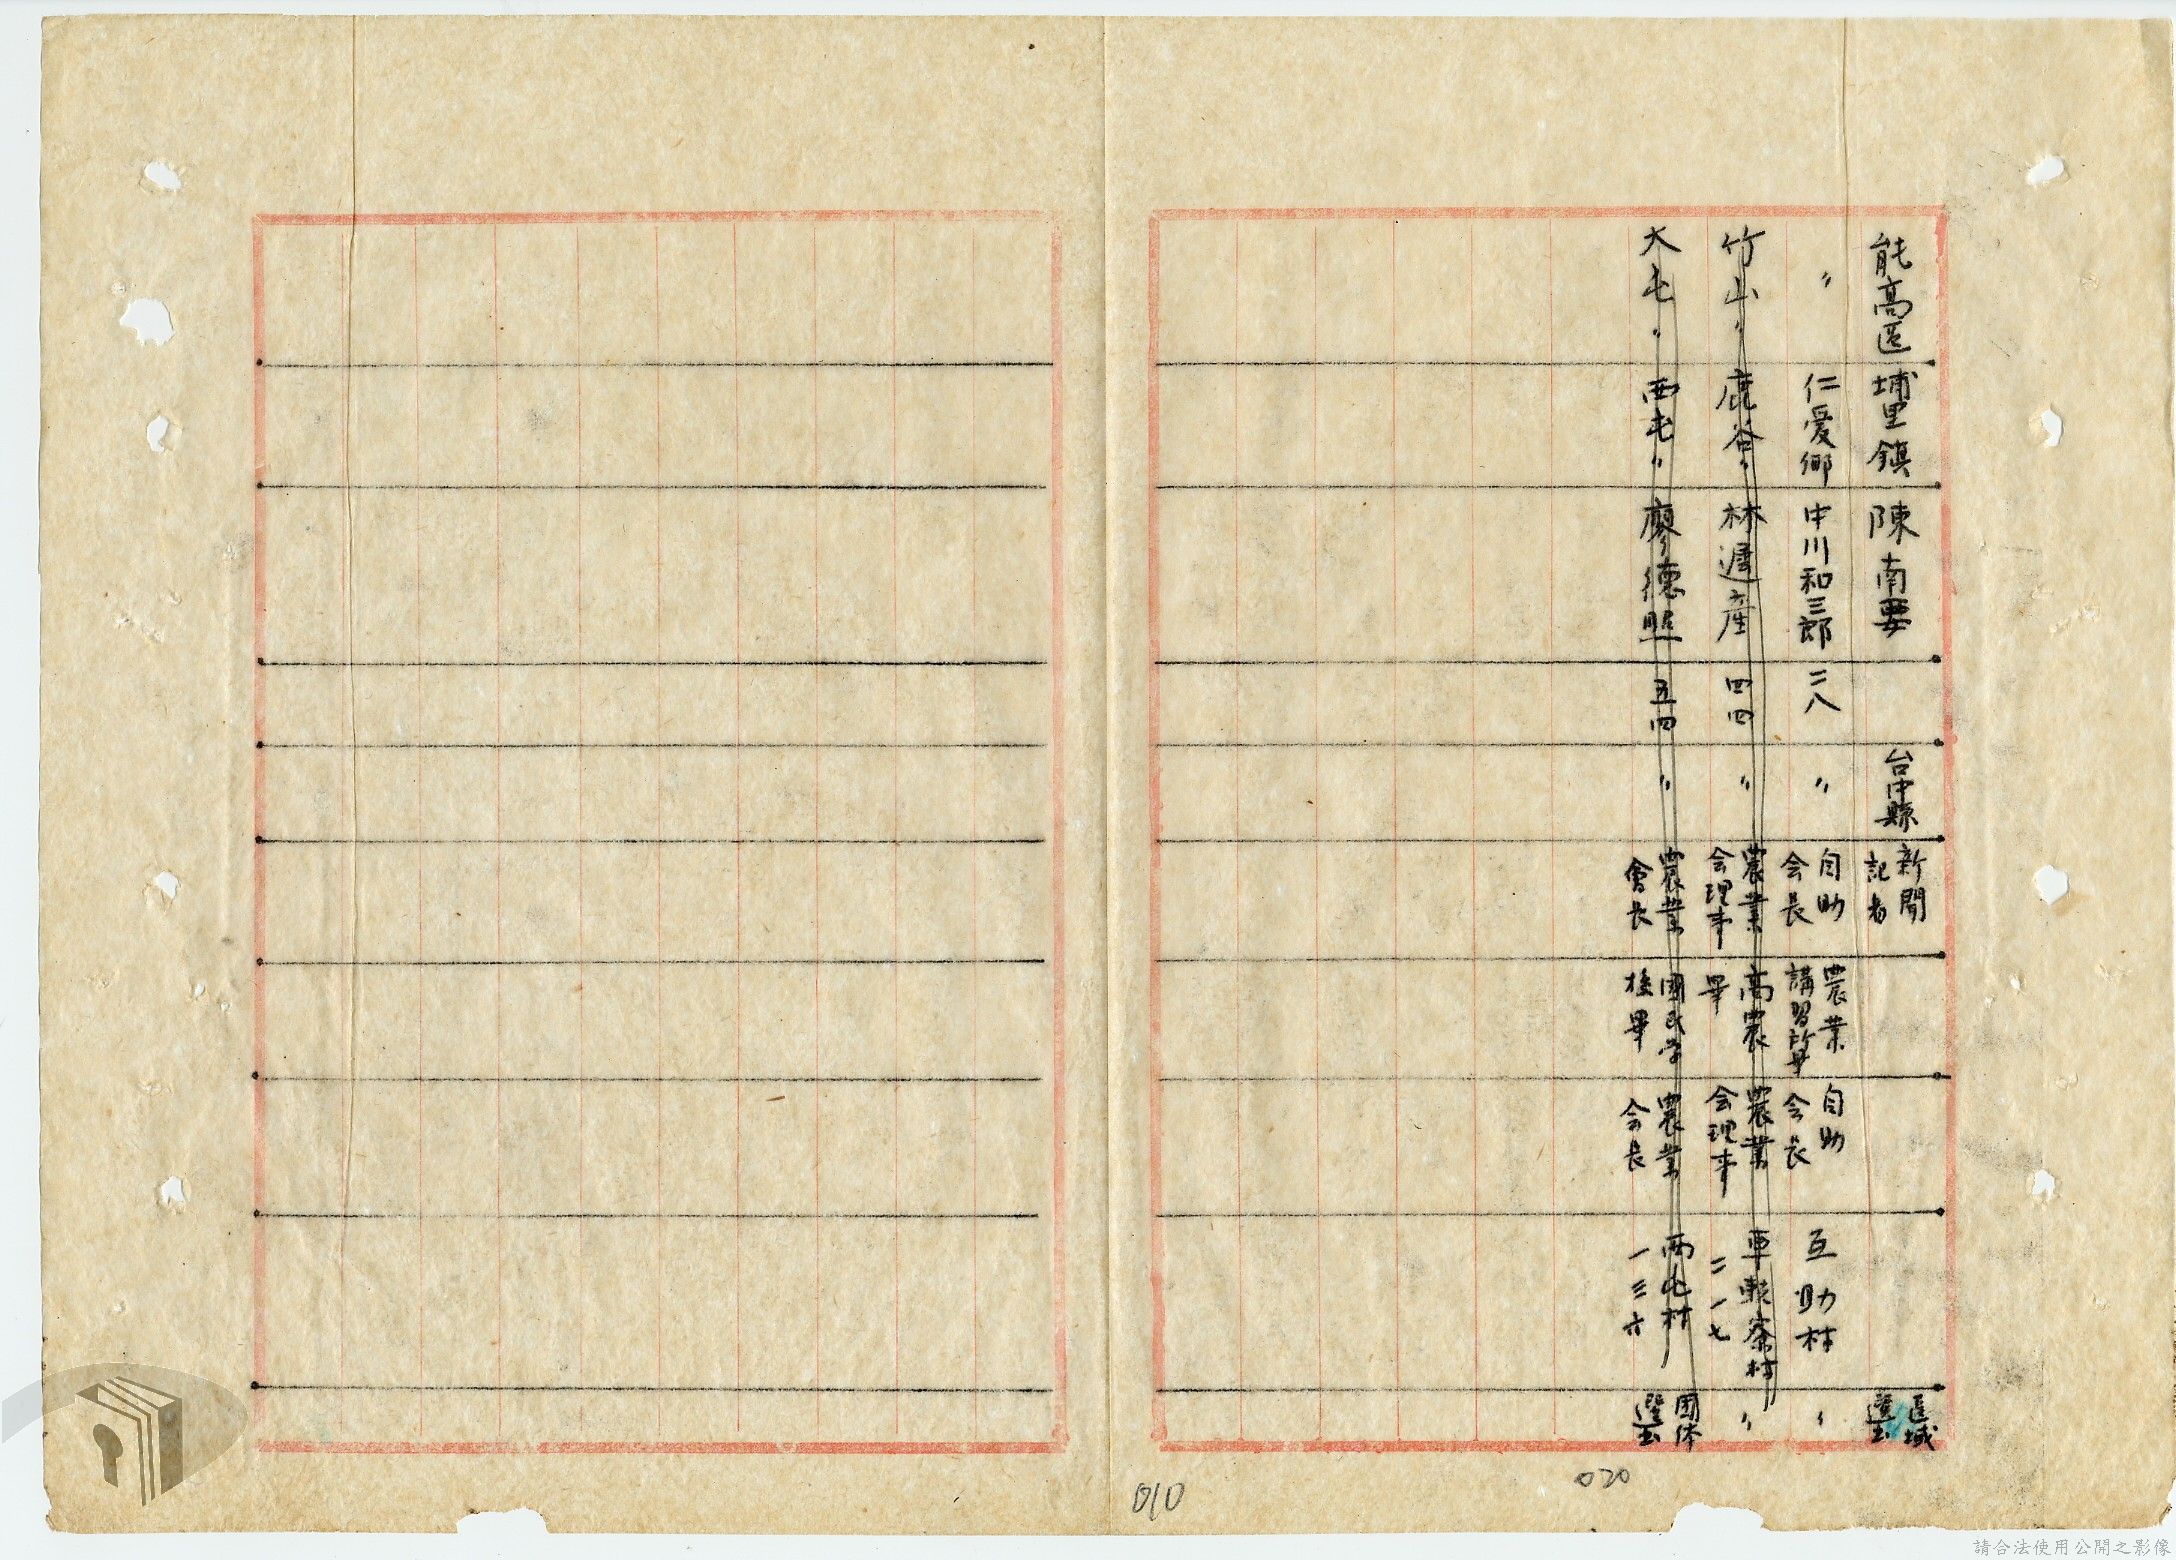 能高區 埔里鎮 陳南要 台中縣 新聞記者 區域選出
〃 仁愛鄉 中川和三郎 二八 〃 自助会長 農業講習所畢 自助会長 互助村 〃
竹山〃 鹿谷〃 林遲産 四四 〃 農業会理事 高農畢 農業会理事 車輄寮村二一七 〃
大屯〃 西屯〃 廖德照 五四 〃 農業會長 國民学校畢 農業会長 西屯村一三六 團体選出
010
020
請合法使用公開之影像